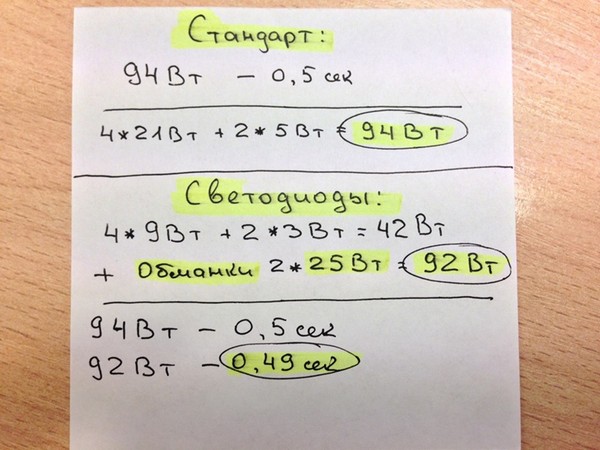 Стандарт:
94 Вт - 0,5 сек
4*21Вт + 2*5Вт = 94Вт
Светодиоды:
4*9Вт + 2*3Вт = 42Вт
+ Обманки 2*25Вт = 92Вт
94Вт - 0,5 сек
92Вт - 0,49 сек